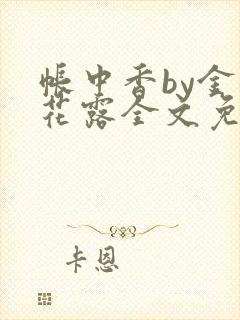 帐中香by金
花露全文免
卡恩